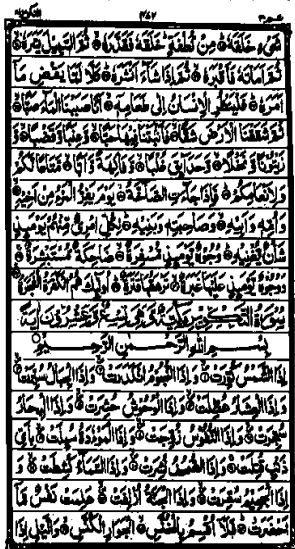 شَیْءٍ خَلَقَهٗ ۞ مِنْ نُّطْفَةٍ خَلَقَهٗ فَقَدَّرَهٗ ۞ ثُمَّ السَّبِیْلَ یَسَّرَهٗ ۞
ثُمَّ اَمَاتَهٗ فَاَقْبَرَهٗ ۞ ثُمَّ اِذَا شَآءَ اَنْشَرَهٗ ۞ كَلَّا لَمَّا یَقْضِ مَاۤ
اَمَرَهٗ ۞ فَلْیَنْظُرِ الْاِنْسَانُ اِلٰى طَعَامِهٖ ۞ اَنَّا صَبَبْنَا الْمَآءَ صَبًّا ۞
ثُمَّ شَقَقْنَا الْاَرْضَ شَقًّا ۞ فَاَنْۢبَتْنَا فِیْهَا حَبًّا ۞ وَّ عِنَبًا وَّ قَضْبًا ۞ وَّ
زَیْتُوْنًا وَّ نَخْلًا ۞ وَّ حَدَآئِقَ غُلْبًا ۞ وَّ فَاكِهَةً وَّ اَبًّا ۞ مَّتَاعًا لَّكُمْ
وَ لِاَنْعَامِكُمْ ۞ فَاِذَا جَآءَتِ الصَّآخَّةُ ۞ یَوْمَ یَفِرُّ الْمَرْءُ مِنْ اَخِیْهِ ۞
وَ اُمِّهٖ وَ اَبِیْهِ ۞ وَ صَاحِبَتِهٖ وَ بَنِیْهِ ۞ لِكُلِّ امْرِئٍ مِّنْهُمْ یَوْمَئِذٍ
شَاْنٌ یُّغْنِیْهِ ۞ وُجُوْهٌ یَّوْمَئِذٍ مُّسْفِرَةٌ ۞ ضَاحِكَةٌ مُّسْتَبْشِرَةٌ ۞
وَ وُجُوْهٌ یَّوْمَئِذٍ عَلَیْهَا غَبَرَةٌ ۞ تَرْهَقُهَا قَتَرَةٌ ۞ اُولٰٓئِكَ هُمُ الْكَفَرَةُ الْفَجَرَةُ ۞
سُوْرَةُ التَّكْوِیْرِ مَكِّیَّةٌ وَّ هِیَ تِسْعٌ وَّ عِشْرُوْنَ اٰیَةً
بِسْمِ اللّٰهِ الرَّحْمٰنِ الرَّحِیْمِ
اِذَا الشَّمْسُ كُوِّرَتْ ۞ وَ اِذَا النُّجُوْمُ انْكَدَرَتْ ۞ وَ اِذَا الْجِبَالُ سُیِّرَتْ ۞
وَ اِذَا الْعِشَارُ عُطِّلَتْ ۞ وَ اِذَا الْوُحُوْشُ حُشِرَتْ ۞ وَ اِذَا الْبِحَارُ
سُجِّرَتْ ۞ وَ اِذَا النُّفُوْسُ زُوِّجَتْ ۞ وَ اِذَا الْمَوْءٗدَةُ سُئِلَتْ ۞ بِاَیِّ
ذَنْۢبٍ قُتِلَتْ ۞ وَ اِذَا الصُّحُفُ نُشِرَتْ ۞ وَ اِذَا السَّمَآءُ كُشِطَتْ ۞ وَ
اِذَا الْجَحِیْمُ سُعِّرَتْ ۞ وَ اِذَا الْجَنَّةُ اُزْلِفَتْ ۞ عَلِمَتْ نَفْسٌ مَّاۤ
اَحْضَرَتْ ۞ فَلَاۤ اُقْسِمُ بِالْخُنَّسِ ۞ الْجَوَارِ الْكُنَّسِ ۞ وَ الَّیْلِ اِذَا